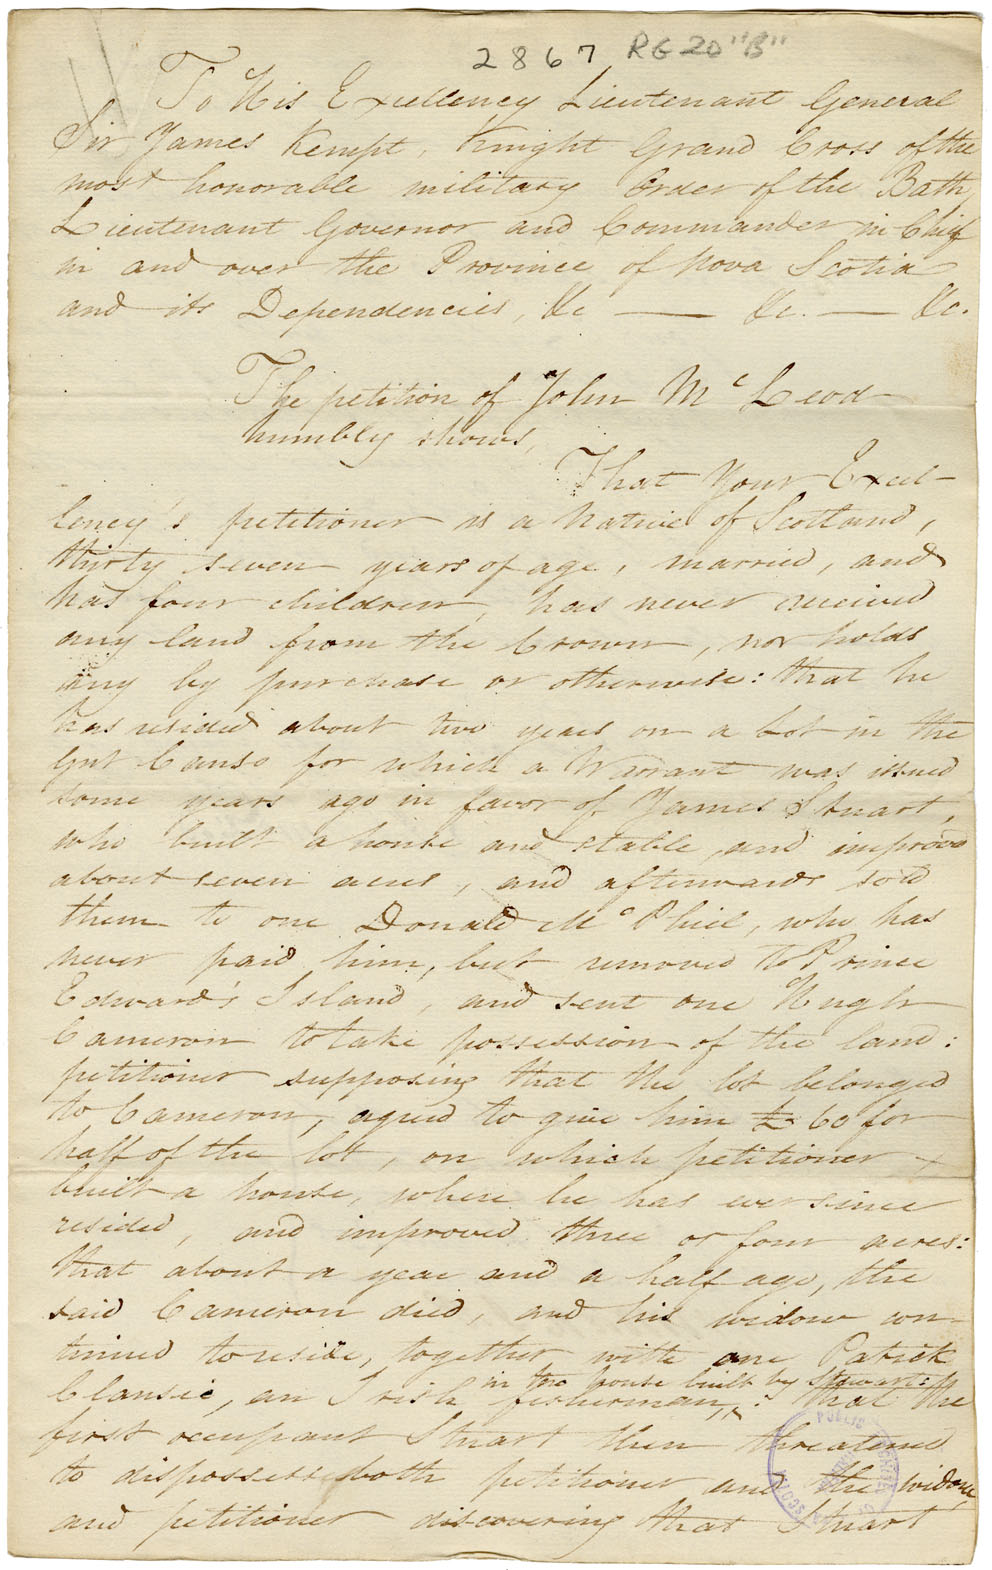 2867 RG 20 "B"
To His Excellency Lieutenant General
Sir James Kempt, Knight Grand Cross of the
most honorable military Order of the Bath,
Lieutenant Governor and Commander in Chief
in and over the Province of Nova Scotia
and its Dependencies, &c — &c. — &c.
The petition of John McLeod
humbly shows,
That Your Excel-
lency's petitioner is a native of Scotland,
thirty seven years of age, married, and
has four children, has never received
any land from the Crown, nor holds
any by purchase or otherwise: that he
has resided about two years on a lot in the
Gut Canso for which a Warrant was issued
some years ago in favor of James Stuart,
who built a house and stable, and improved
about seven acres, and afterwards sold
them to one Donald McPhiel, who has
never paid him, but removed to Prince
Edward's Island, and sent one Hugh
Cameron to take possession of the land:
petitioner supposing that the lot belonged
to Cameron, agreed to give him £60 for
half of the lot, on which petitioner
built a house, where he has ever since
resided, and improved three or four acres:
that about a year and a half ago, the
said Cameron died, and his widow con-
tinued to reside, together with one Patrick
in the house built by Stewart:
Clansie, an Irish fisherman,: that the
first occupant Stuart then threatened
to dispossess both petitioner and the widow,
and petitioner discovering that Stuart
PUBLIC ARCHIVES OF NOVA SCOTIA